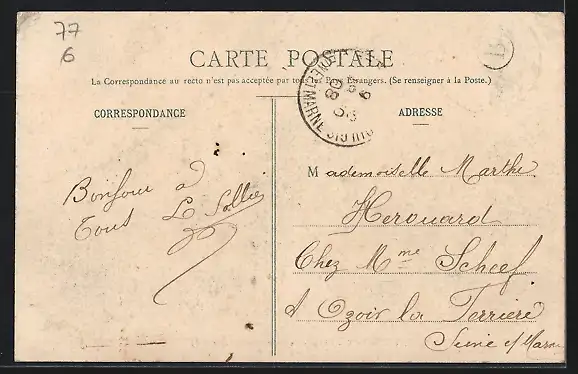 77
6
CARTE POSTALE
La Correspondance au recto n'est pas acceptée par tous les Pays Étrangers. (Se renseigner à la Poste.)
CORRESPONDANCE
ADRESSE
ET MARNE
Bonjour à
Tous
Mademoiselle Marthe
Herouard
Chez Mme Scheef
A Ozoir la Ferrière
Seine et Marne